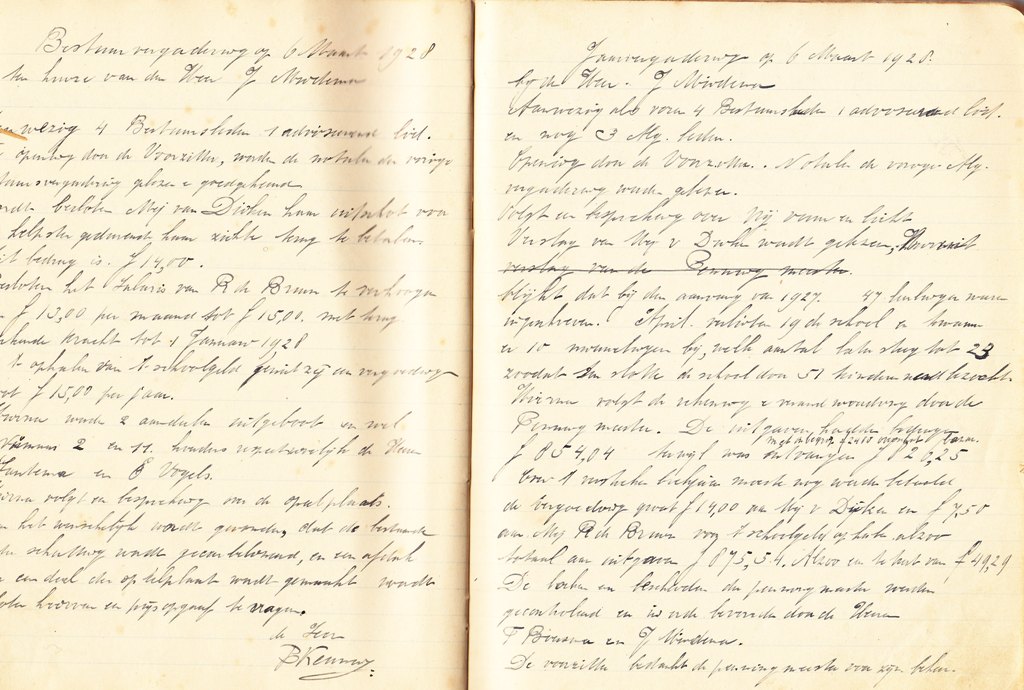 Bestuursvergadering op 6 Maart 1928
ten huize van den Heer J Miedema
wezig 4 Bestuursleden 1 adviseerend lid.
opening door de Voorzitter, worden de notulen der vorige
tuursvergadering gelezen e goedgekeurd
rdt besloten Mej van Dijken haar uitschot voor
helpster gedurende haar ziekte terug te betalen
it bedrag is f 14,00.
esloten het Salaris van R de Bruin te verhoogen
f 13,00 per maand tot f 15,00 met terug
kende kracht tot 1 Januari 1928
't ophalen van 't schoolgeld geniet zij een vergoeding
ot f 15,00 per jaar.
Hierna worden 2 aandeelen uitgeloot en wel
Nummers 2 en 11. houders respectievelijk de Heeren
en E Vogels.
ierna volgt een bespreking over de speelplaats.
n het wenschelijk wordt gevonden, dat de bestaande
schutting wordt gecarboleumd, en een afdak
een deel der speelplaats wordt gemaakt wordt
loten hiervan en prijsopgaaf te vragen.
de Heer
Jaarvergadering op 6 Maart 1928.
bij de Heer J Miedema
Aanwezig als voren 4 Bestuursleden 1 adviseerend lid.
en nog 3 Alg. leden.
Opening door de Voorzitter. Notulen de vorige Alg.
vergadering worden gelezen.
Volgt een bespreking over vrij vuur en licht
Verslag van Mej v Dijken wordt gelezen, Hieruit
verslag van de Penningmeester.
blijkt dat bij den aanvang van 1927. 47 leerlingen waren
ingeschreven. April verlieten 19 de school en kwamen
er 10 nieuwelingen bij, welk aantal later steeg tot 23
zoodat den slotte de school door 51 kinderen werd bezocht.
Hierna volgt de rekening e verantwoording door de
Penningmeester. De uitgaven hadden bedragen
f 854,04 terwijl was ontvangen f 826,25
over 't verstreken boekjaar moeste nog worden betaald
de vergoeding groot f 14,00 aan Mej v Dijken en f 7,50
aan Mej R de Bruin voor 't schoolgeld ophalen alzoo
totaal aan uitgaven f 875,54. Alzoo en te kort van f 49,29
De boeken en bescheiden der penningmeester werden
gecontroleerd en in orde bevonden door de Heeren
F Bouma en J Miedema.
De voorzitter bedankt de penningmeester voor zijn beheer.